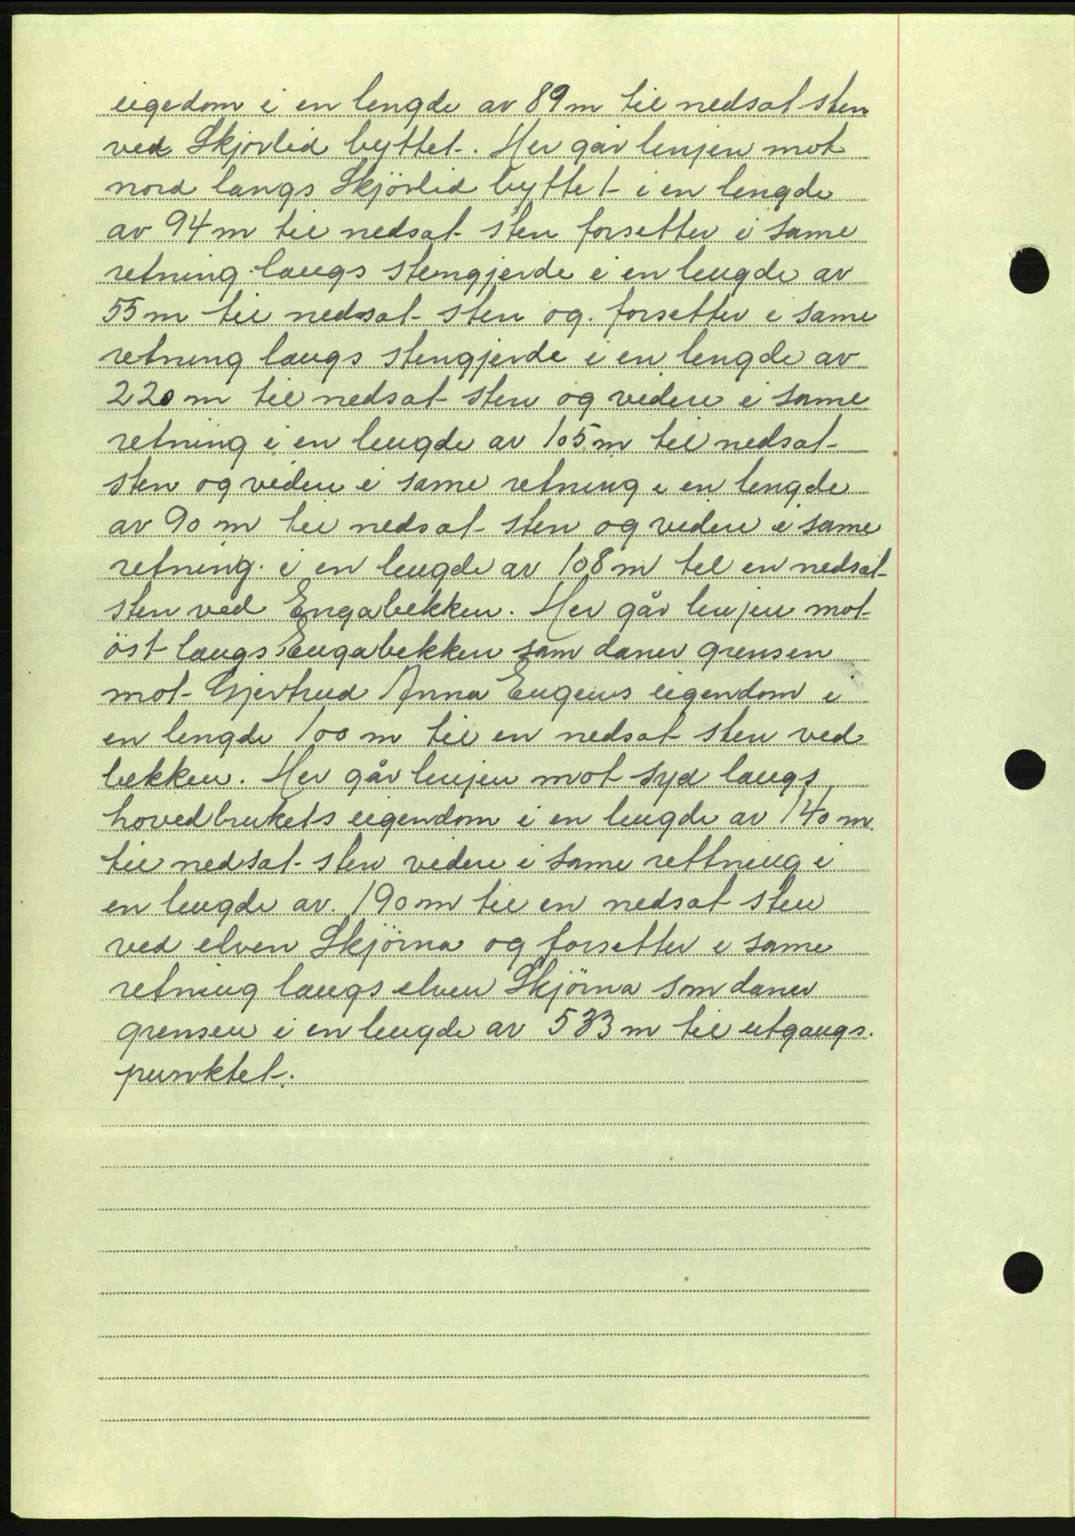 eigedom i en lengde av 89 m til nedsat sten
ved Skjørlid byttet. Her går lenjen mot
nord langs Skjörlid byttet i en lengde
av 94 m til nedsat sten forsetter i same
retning langs stengjerde i en lengde av
55 m til nedsat sten og forsetter i same
retning langs stengjerde i en lengde av
220 m til nedsat sten og videre i same
retning i en lengde av 105 m til nedsat
sten og videre i same retning i en lengde
av 90 m til nedsat sten og videre i same
retning i en lengde av 108 m til en nedsat
sten ved Engabekken. Her går lenjen mot
öst langs Engabekken som daner grensen
mot Gjertrud Anna Engens eigendom i
en lengde 100 m til en nedsat sten ved
bekken. Her går lenjen mot syd langs
hovedbrukets eigendom i en lengde av 140 m.
til nedsat sten videre i same rettning i
en lengde av. 190 m til en nedsat sten
ved elven Skjörna og forsetter i same
retning langs elven Skjörna som daner
grensen i en lengde av 533 m til utgangs.
punktet.